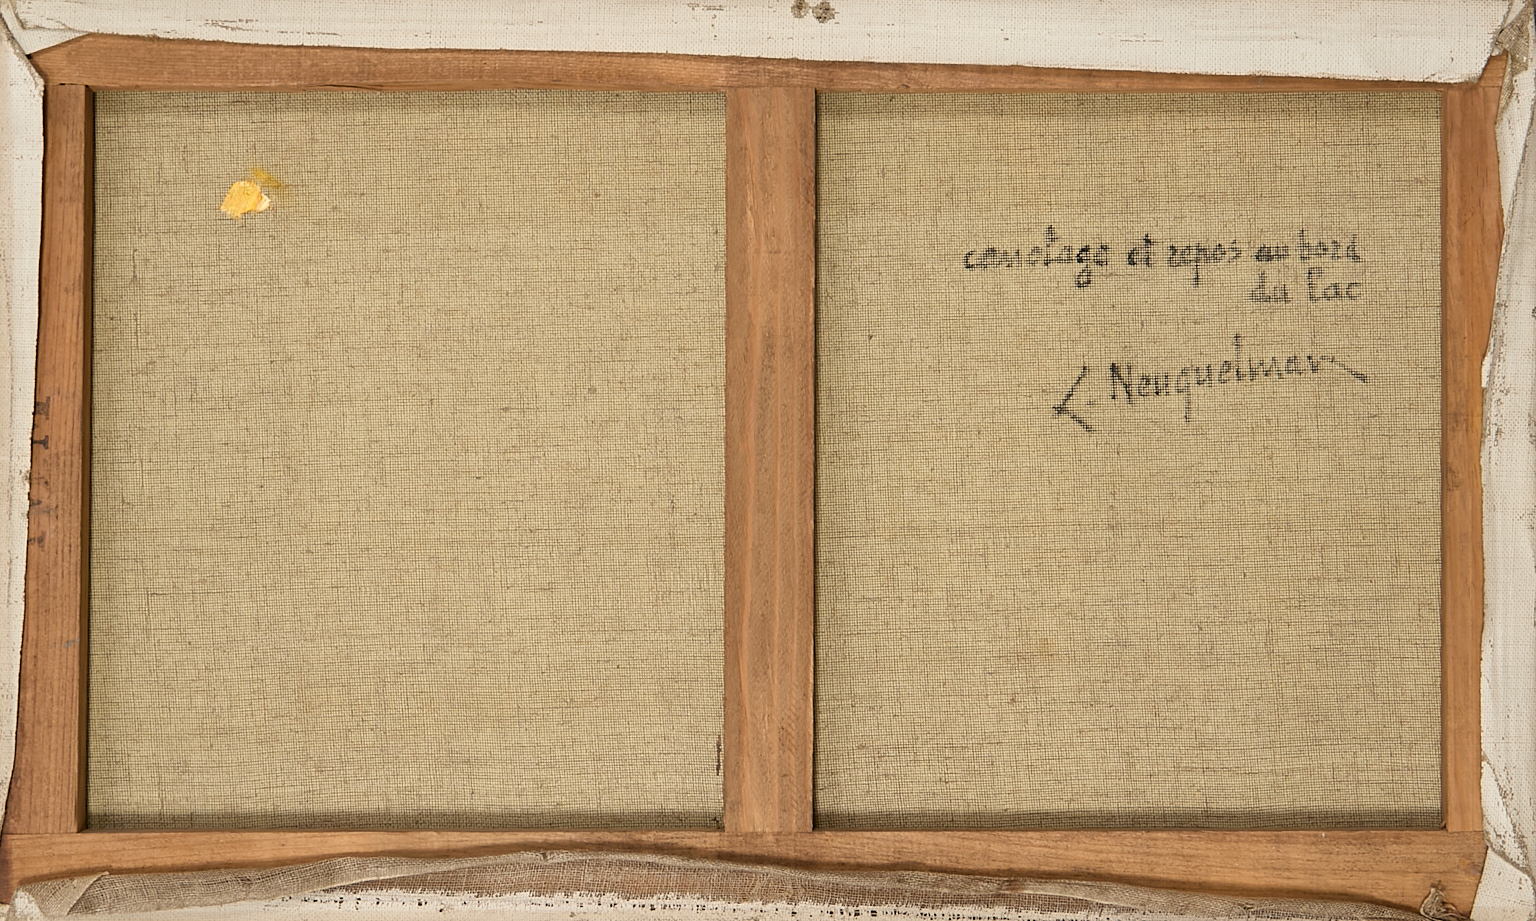 canotage et repos au bord
du lac
L. Neuquelman